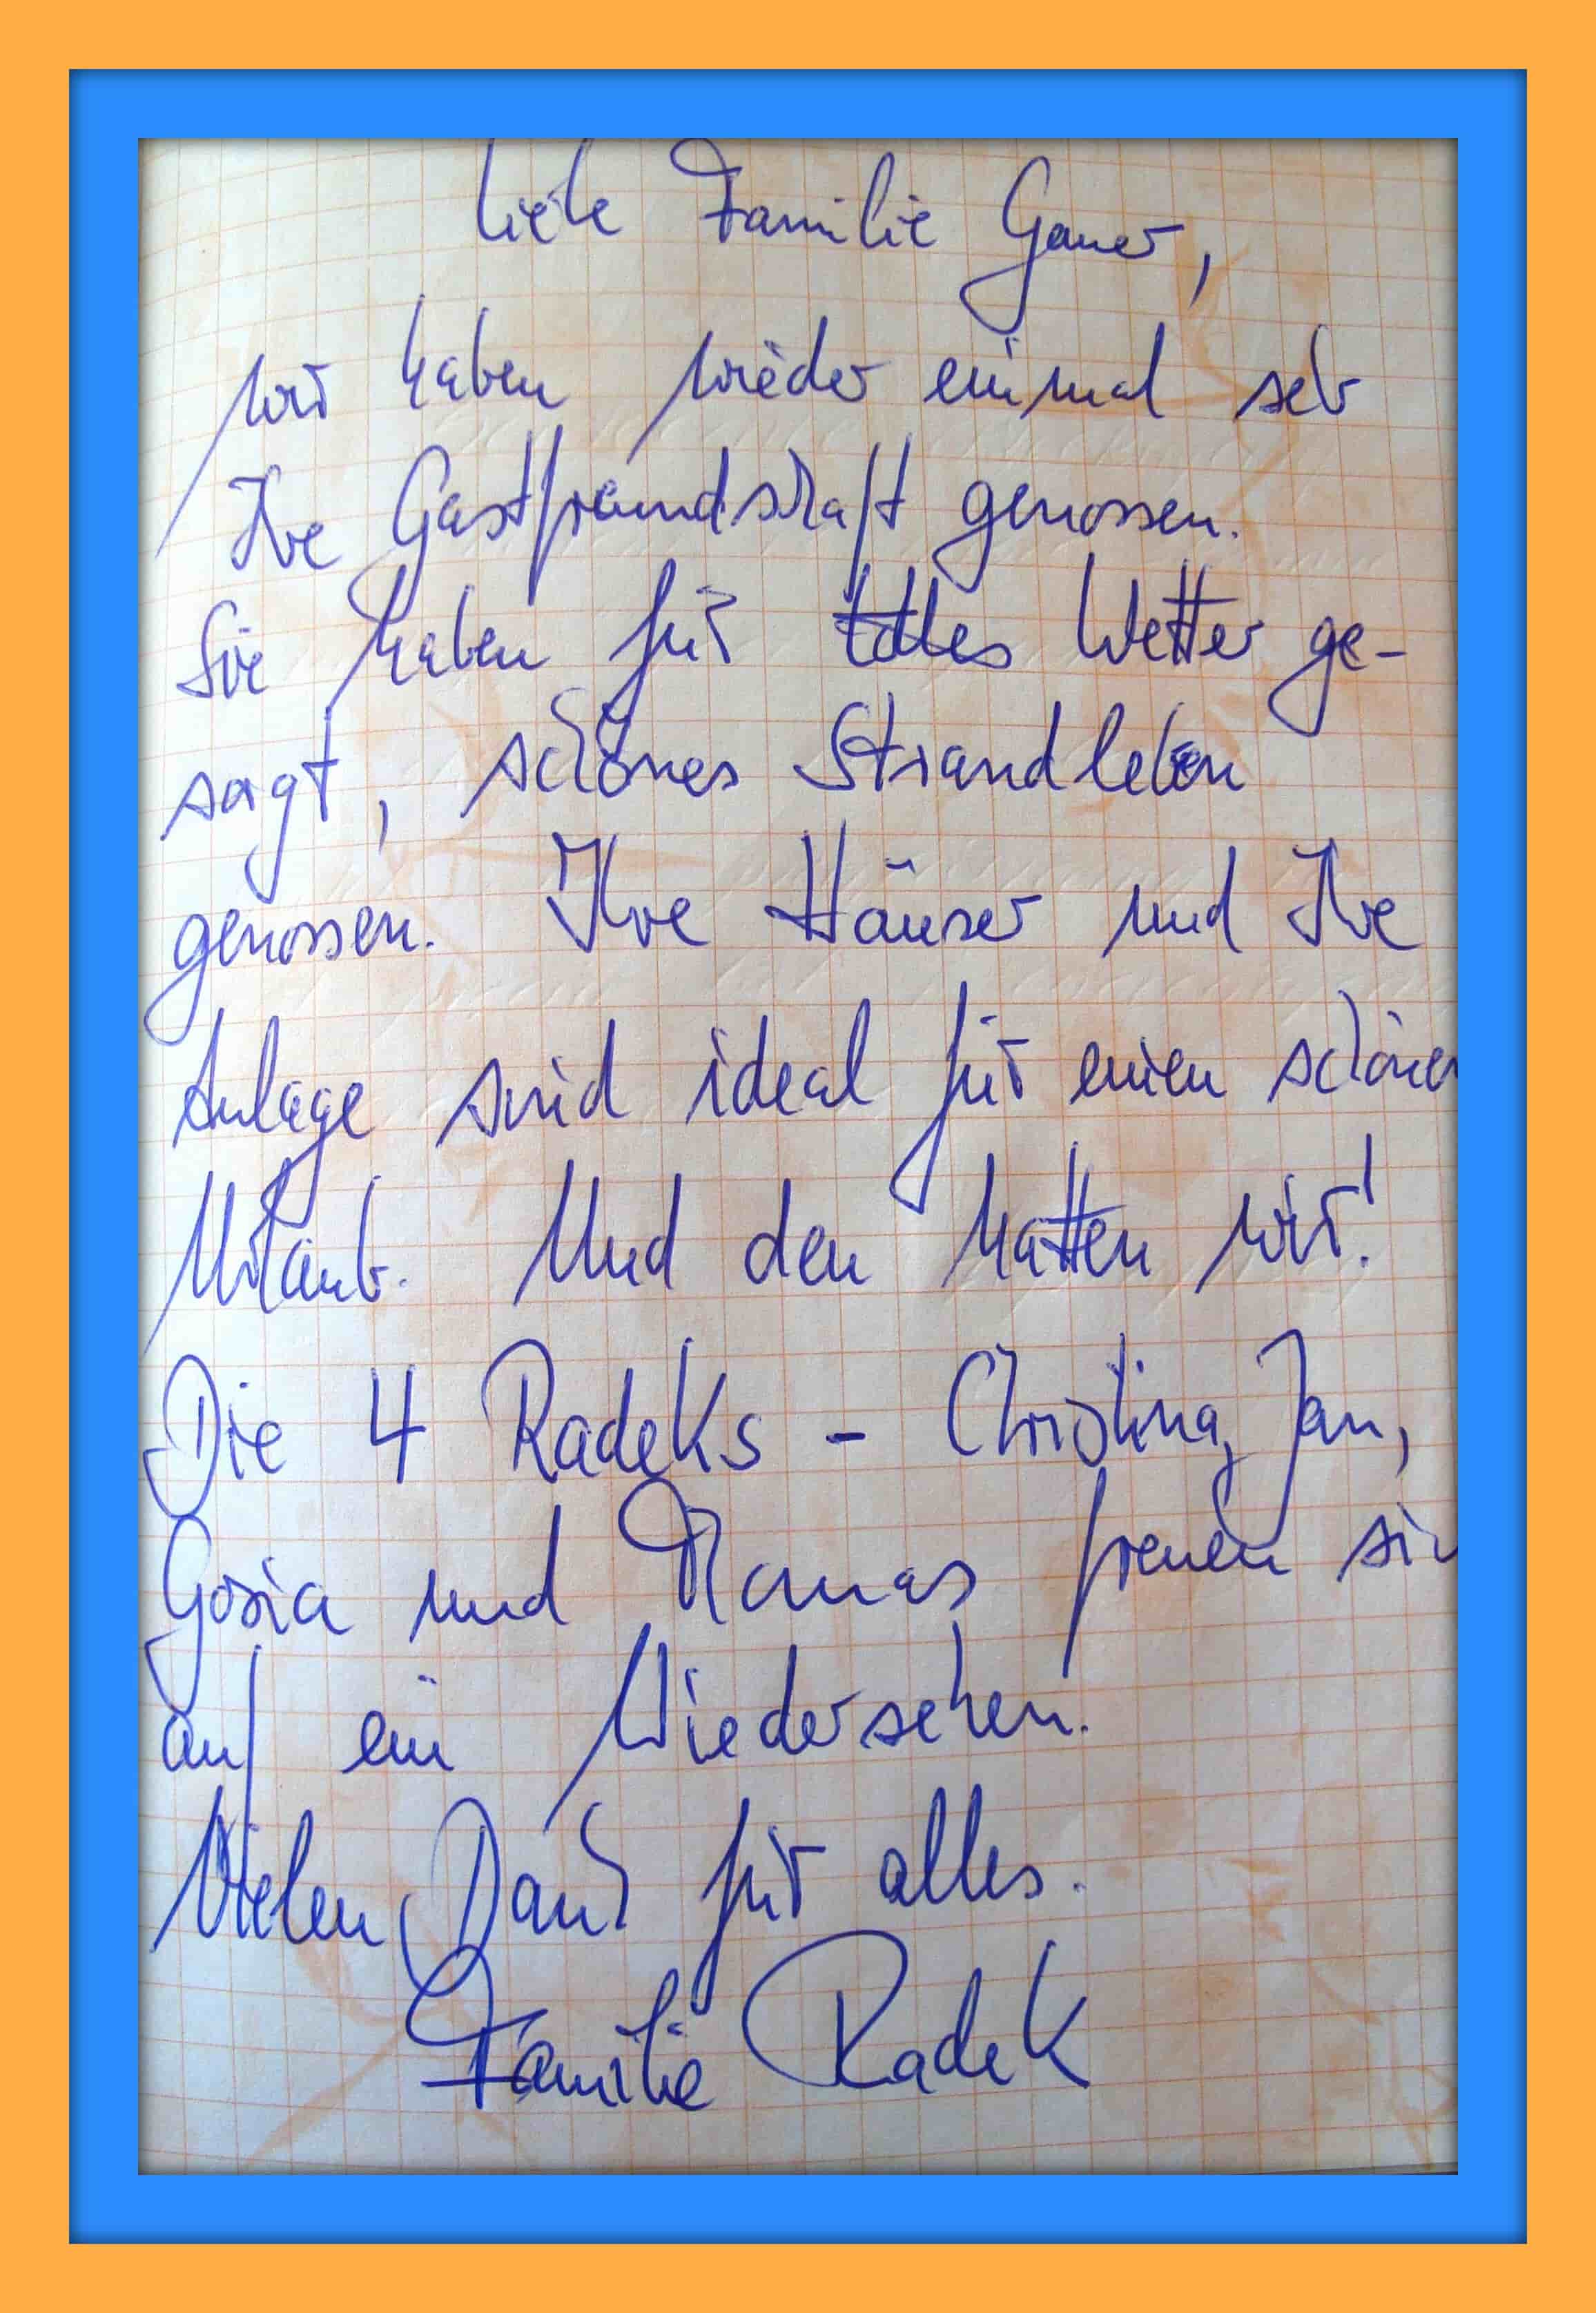 Liebe Familie Gauer,
wir haben wieder einmal sehr
Ihre Gastfreundschaft genossen.
Sie haben für tolles Wetter ge-
sagt, schönes Strandleben
genossen. Ihre Häuser und Ihre
Anlage sind ideal für einen schönen
Urlaub. Und den hatten wir!
Die 4 Radeks - Christina, Jan,
Gosia und Thomas freuen sich
auf ein Wiedersehen.
Vielen Dank für alles.
Familie Radek